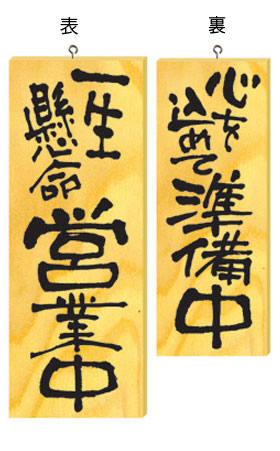 表
一生
懸命
営業中
裏
心を
込めて
準備中